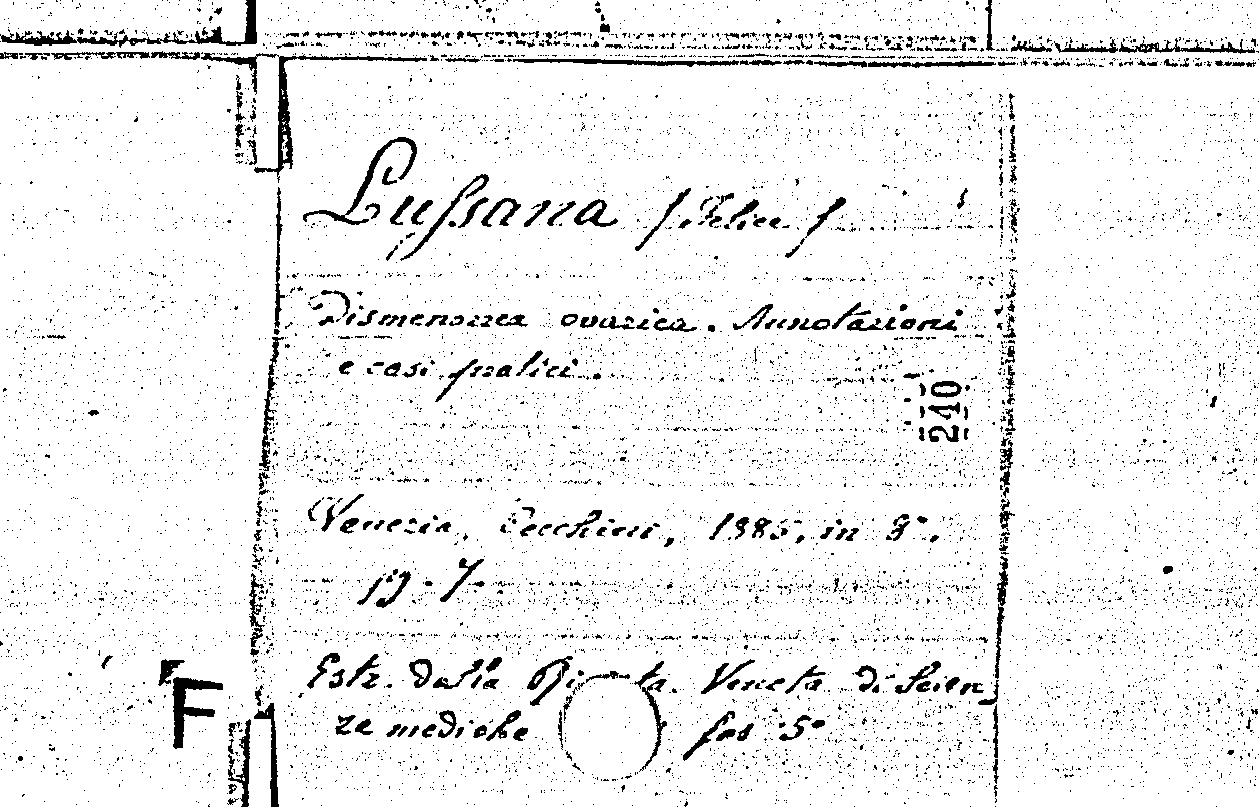 Lussana (Felice)
Dismenorrea ovarica. Annotazioni
e casi pratici.
240
Venezia, Cecchini, 1885, in 8°.
pg. 7.
Estr. dalla Ri ta Veneta di Scien
ze mediche fas 5°
F